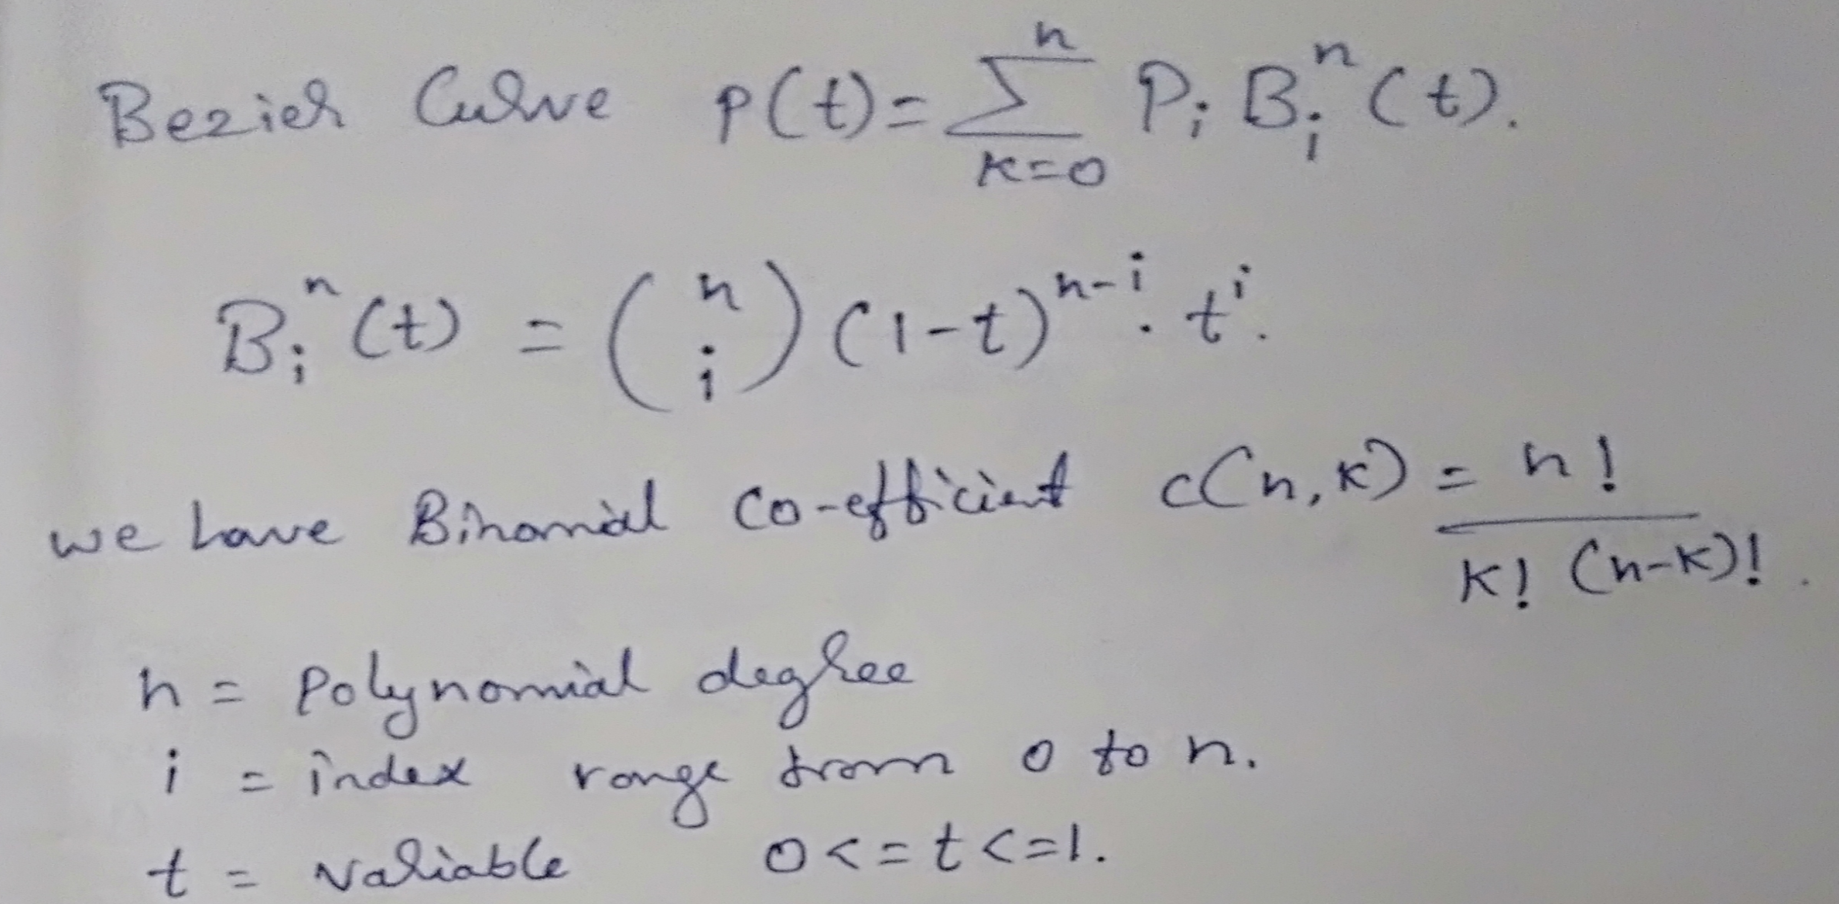 Bezier Curve p(t)= \sum_{k=0}^{n} P_i B_i^n (t).
B_i^n (t) = \binom{n}{i} (1-t)^{n-i} . t^i.
we have Binomial co-efficient c(n,k) = \frac{n!}{k! (n-k)!}.
n = polynomial degree
i = index range from 0 to n.
t = variable 0<=t<=1.